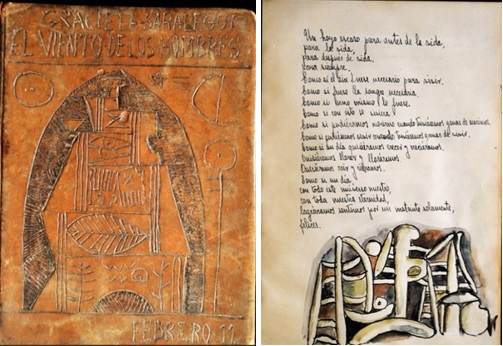 GRACIELA SARALEGUI
EL VIENTO DE LOS HOMBRES
FEBRERO 11
Un hoyo oscuro para antes de la vida,
para la vida,
para después de vida,
siempre.
Como si el aire fuese necesario para vivir.
Como si fuese la sangre necesaria
Como si uno mismo lo fuese.
Como si con esto se
Como si pudiéramos morirnos cuando tuviéramos ganas de morirnos
Como si pudiéramos vivir cuando tuviéramos ganas de vivir.
Como si un día quisiéramos crecer y creciéramos.
Quisiéramos llorar y lloráramos.
Quisiéramos reir y riéramos.
Como si un día
con todo este universo nuestro,
con toda nuestra eternidad,
lográramos sentirnos por un instante solamente,
felices.